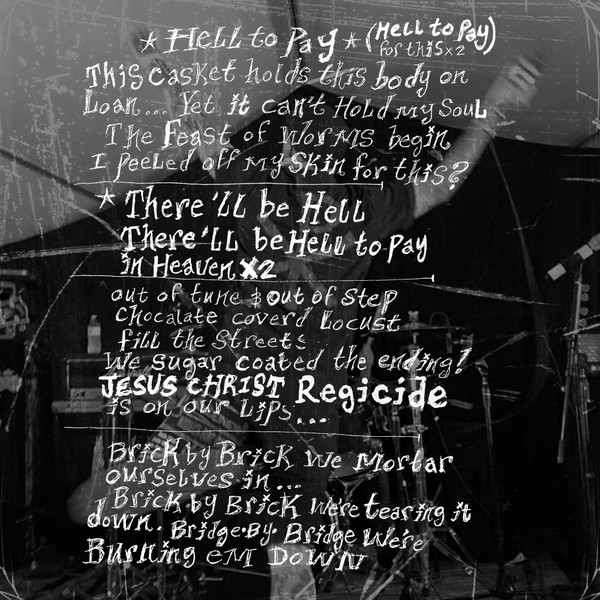 * Hell to Pay * (Hell to Pay)
for this x2
This casket holds this body on
Loan... Yet it can't Hold my Soul
The Feast of Worms begin
I peeled off my skin for this?
* There'll be Hell
There'll be Hell to pay
in Heaven x2
out of tune & out of step
chocalate coverd Locust
fill the streets
We sugar coated the ending!
JESUS CHRIST Regicide
is on our Lips...
Brick by Brick We Mortar
ourselves in...
Brick by Brick We're tearing it
down. Bridge-By-Bridge We're
Burning em DOWN